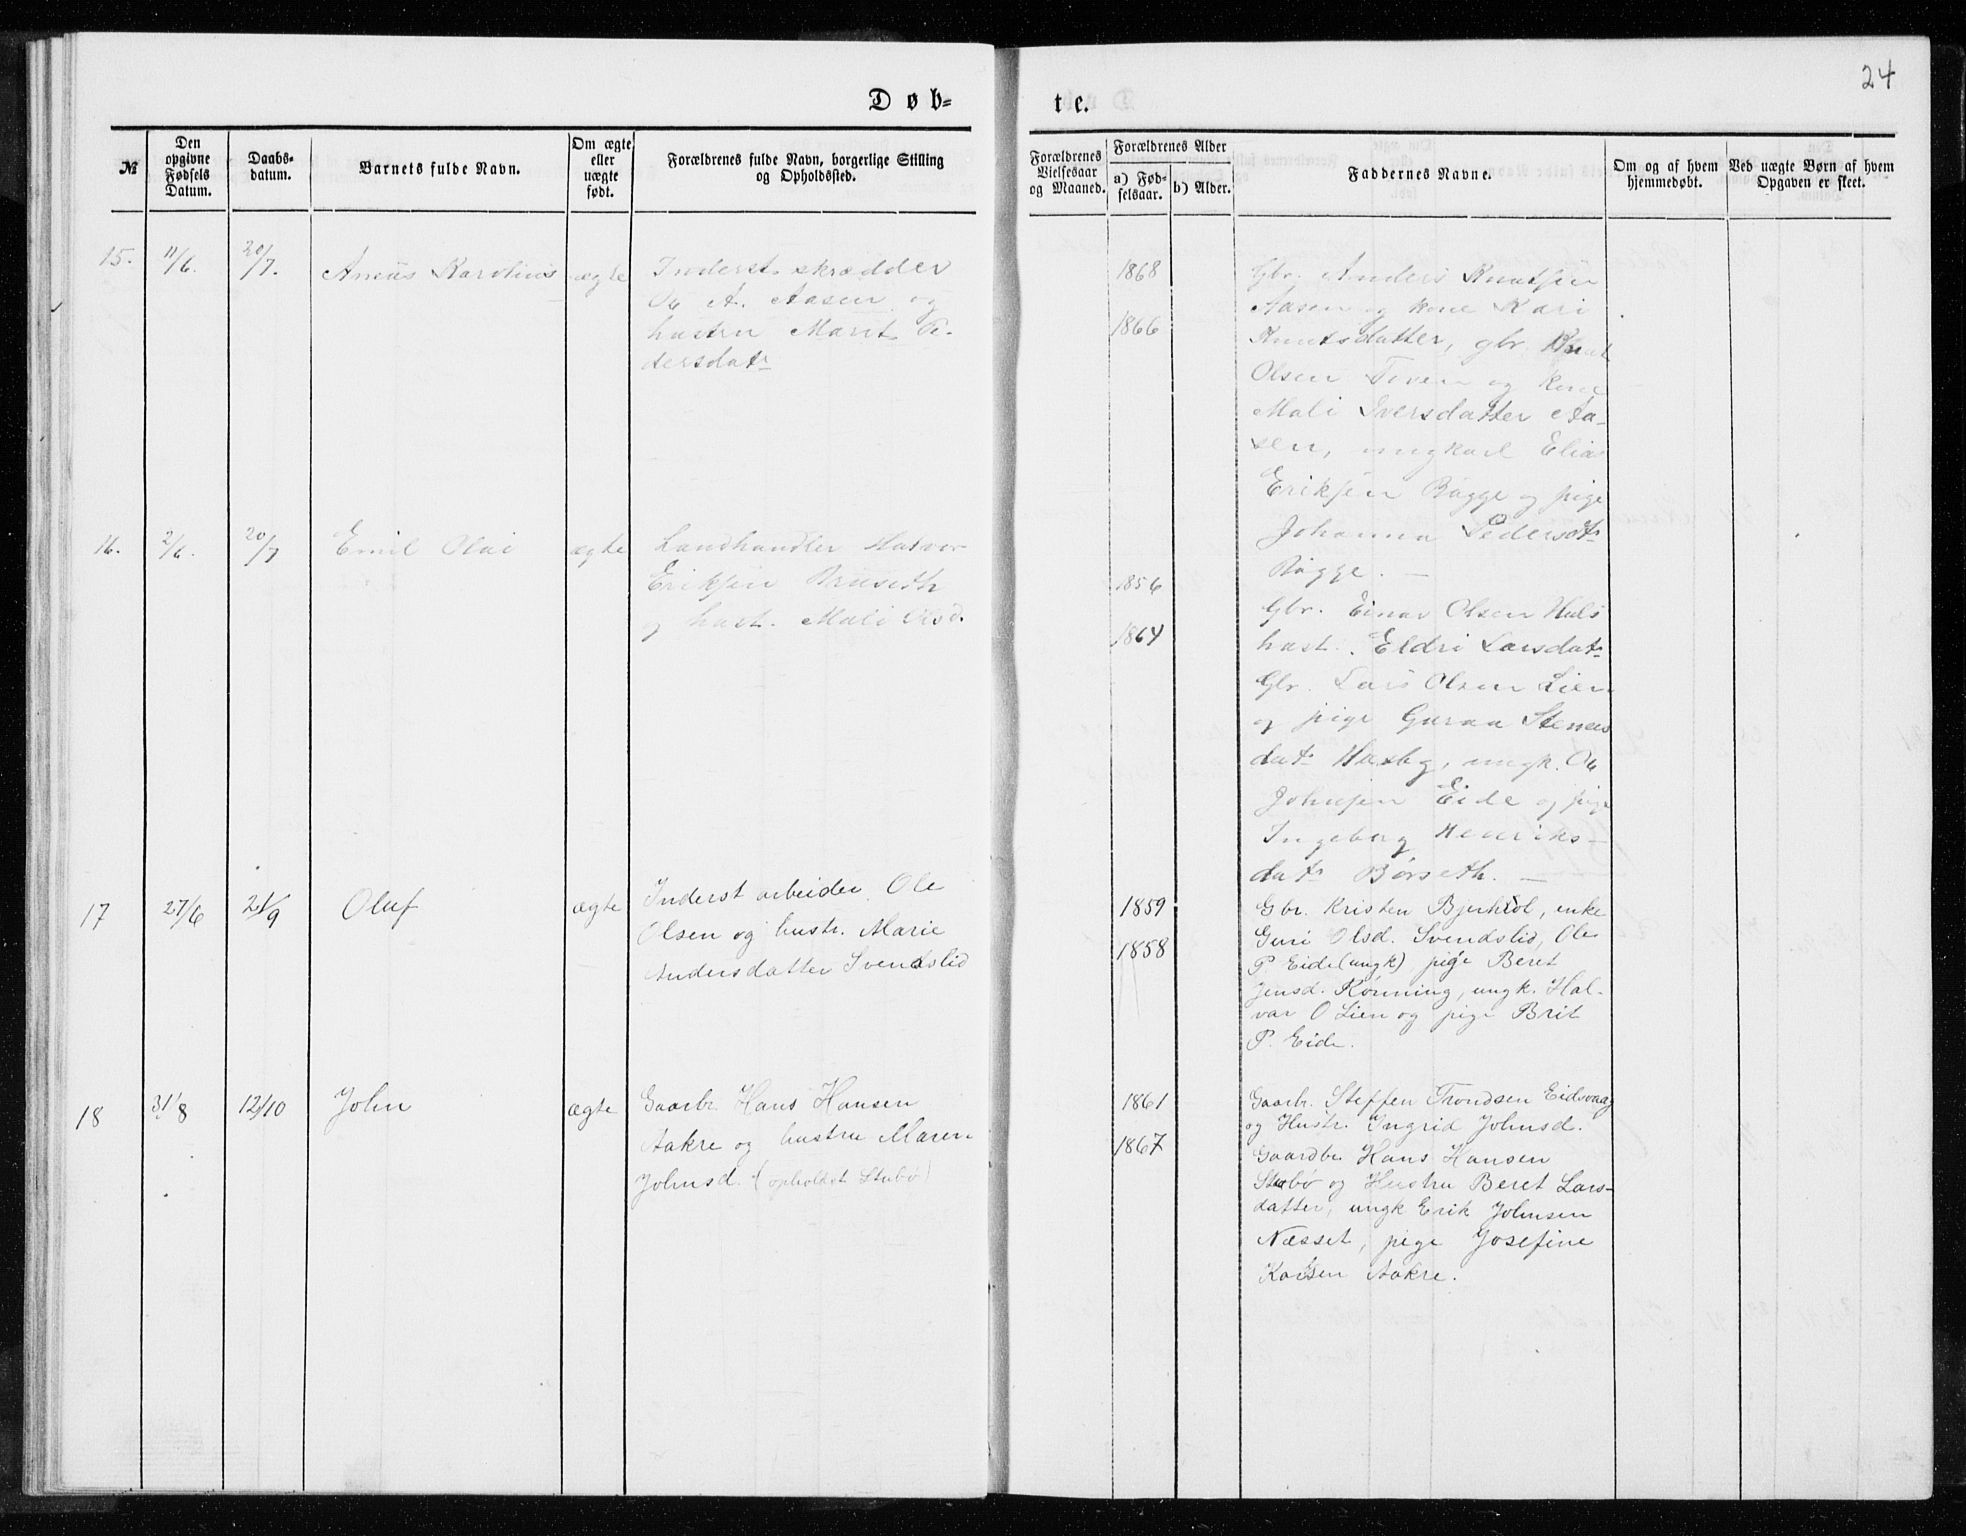 24
Døb-
te.
№
Den
opgivne
Fødsels
Datum.
Daabs-
datum.
Barnets fulde Navn.
Om ægte
eller
uægte
født.
Forældrenes fulde Navn, borgerlige Stilling
og Opholdssted.
Forældrenes
Vielsesaar
og Maaned.
Forældrenes Alder
a) Fød-
selsaar.
b) Alder.
Faddernes Navne.
Om og af hvem
hjemmedøbt.
Ved uægte Børn af hvem
Opgaven er skeet.
15.
11/6.
20/7.
Karolius
ægte
Inderst. skrædder
A. Aasen og
hustru Marit Pe-
dersdatr
1868
1866
Gbr. Anders Knutsen
Aasen og kone Kari
Knutsdatter, gbr. Knut
Olsen og kone
Mali Iversdatter Aa-
sen, ungkarl Elias
Eriksen Bugge og pige
Johanna Pedersdtr
Bugge. —
16.
2/6.
20/7
Emil Olai
ægte
Landhandler Halvor
Eriksen Bruseth
og hust. Mali Olsd.
1856
1864
Gbr. Einar Olsen Hals
hust. Eldri Larsdatr
Gbr. Lars Olsen Lien
og pige Guraa
datr ungk.
Johnsen Eide og pige
Ingeborg Henriks-
datr Børseth. —
17
27/6
21/9
Oluf
ægte
Inderst arbeider Ole
Olsen og hustr. Marie
Andersdatter Svendslid
1859
1858
Gbr. Kristen enke
Guri Olsd. Svendslid, Ole
P. Eide (ungk) pige Beret
Jensd. Rønning, ungk. Hal-
var O Lien og pige Brit
P. Eide.
18
31/8
12/10
John
ægte
Gaarbr. Hans Hansen
Aakre og hustru Maren
Johnsd. (opholdst Stubø)
1861
1867
Gaarbr. Steffen Trondsen Eidsvaag
og Hustr. Ingrid Johnsd.
Gaardbr. Hans Hansen
Stubø og Hustru Beret Lars-
datter, ungk Erik Johnsen
Næsset, pige Josefine
Aakre.